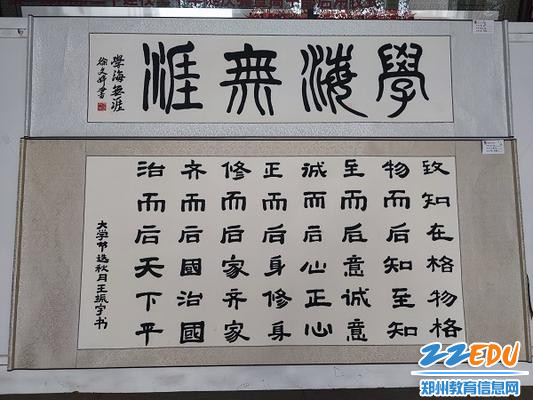 學海無涯
學海無涯
徐文祥書
致知在格物格
物而后知至知
至而后意誠意
誠而后心正心
正而后身修身
修而后家齐家
齐而后國治國
治而后天下平
大学节选秋月王振宇书
ZZEDU
郑州教育信息网